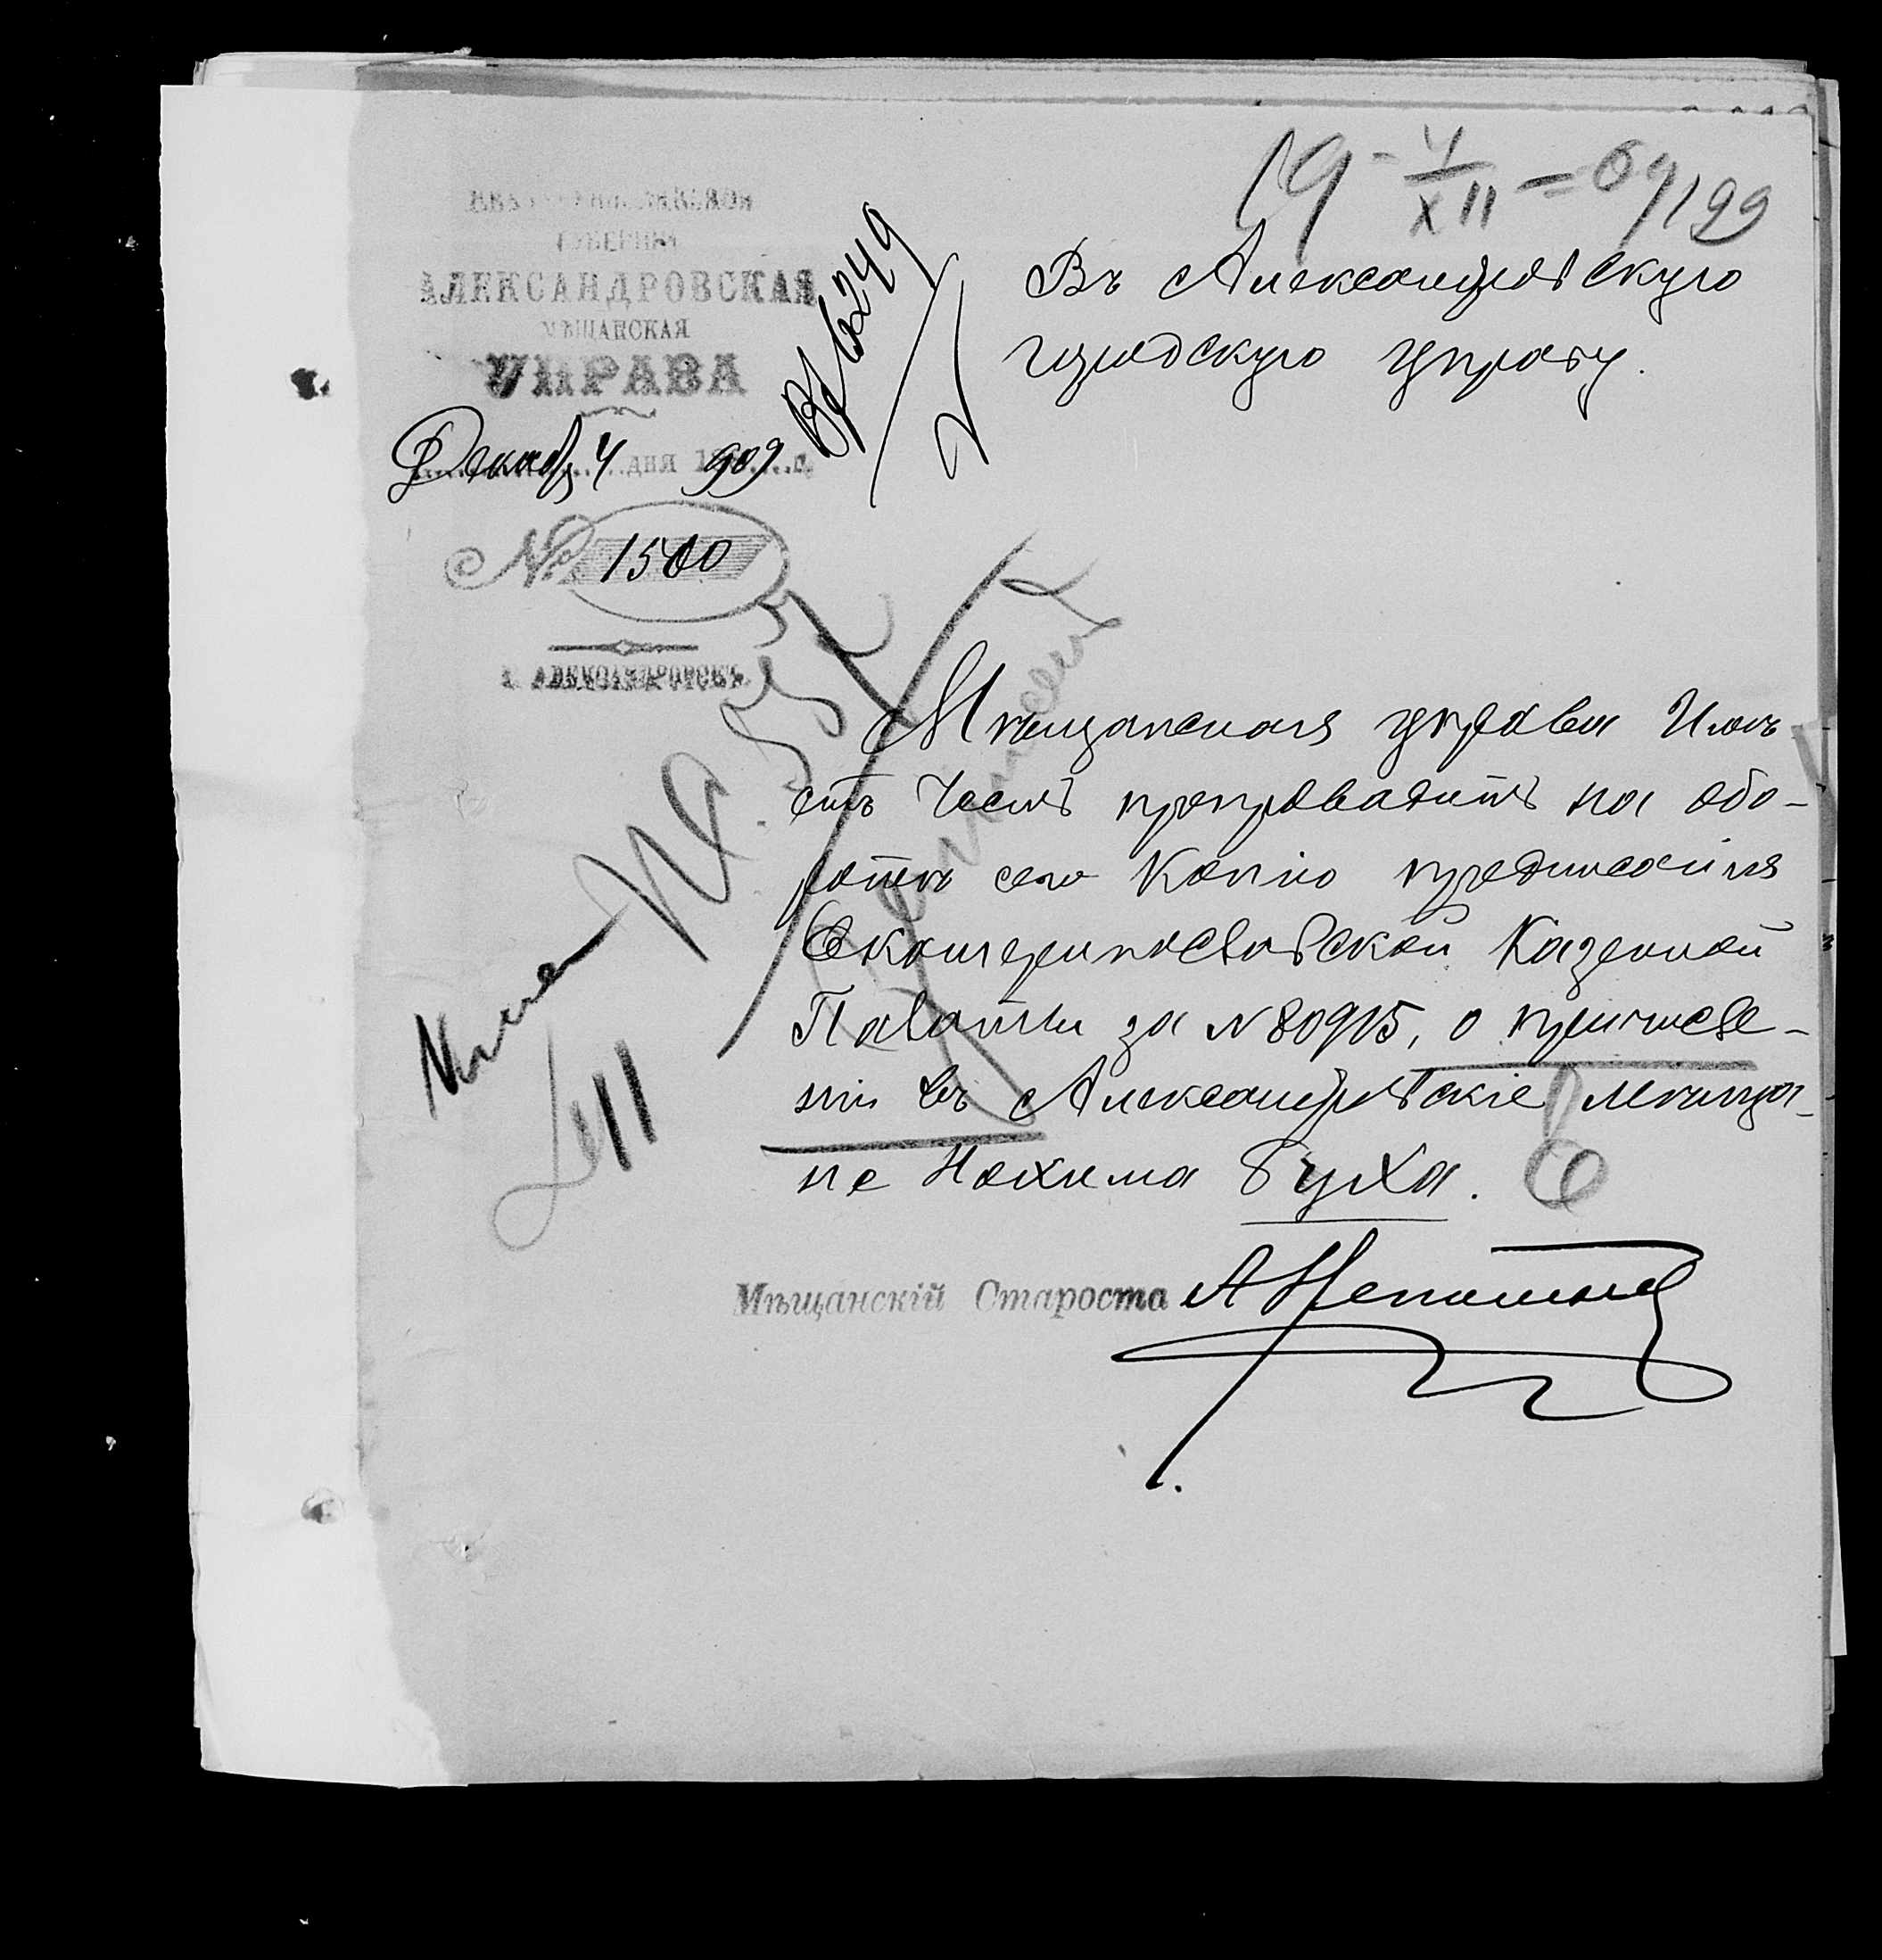 ЕКАТЕРИНОСЛАВСКОЙ
ГУБЕРНІИ
АЛЕКСАНДРОВСКАЯ
МѢЩАНСКАЯ
УПРАВА
Декаб. 4 дня 1909 г.
№ 1500
г. АЛЕКСАНДРОВСКЪ.
19 - 4/XII - 09
199
Вх 6249
Въ Александровскую
городскую управу.
Мѣщанская управа Имѣ-
етъ Честь препроводить на обо-
ротѣ сего Копію предписанія
Екатеринославской Казенной
Палаты за № 80915, о причисле-
ніи въ Александровскіе мѣща-
не Нохима Буха.
Мѣщанскій Староста А Непошив